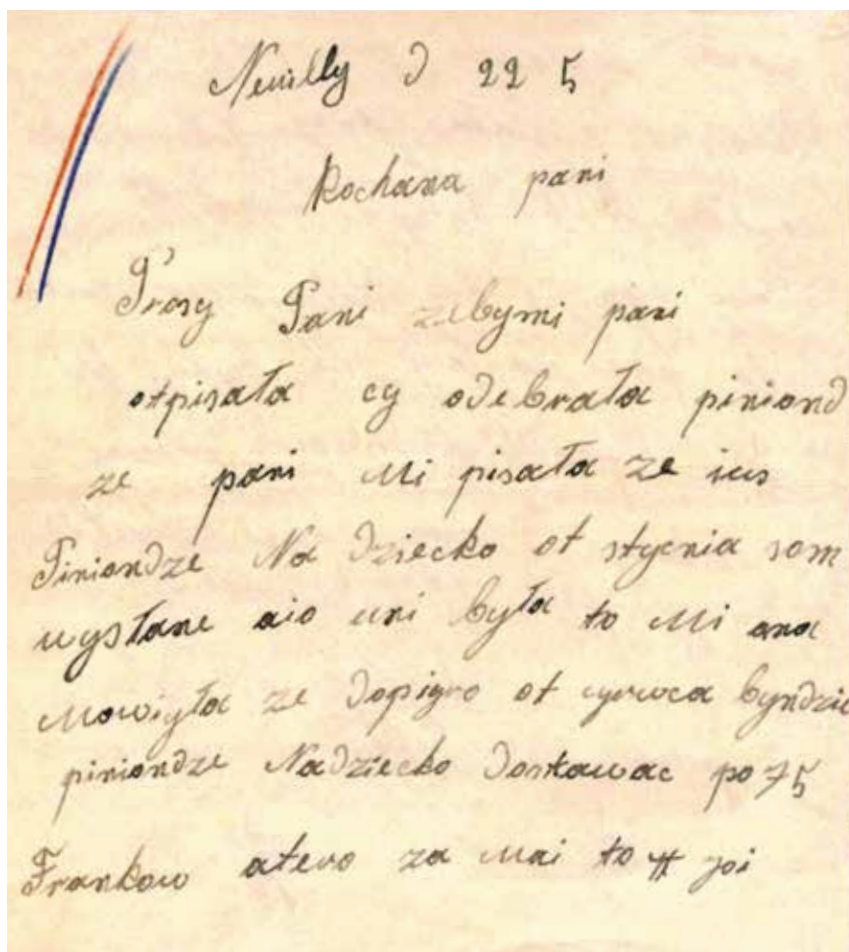 Neuilly d 22 5
Kochana pani
Prosy Pani zebymi pani
otpisała cy odebrała piniond
ze pani Mi pisała ze ius
Piniondze Na dziecko ot stycnia som
wysłane aio uni była to Mi ona
Mowiyła ze dopiyro ot cyrwca byndzie
piniondze Nadziecko dostawac po 75
Frankow atero za Mai to